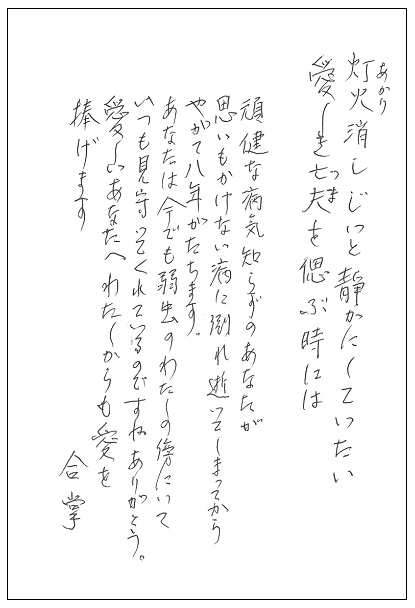 灯火消しじいと静かにしていたい
あかり
愛しき亡夫を偲ぶ時には
つま
頑健な病気知らずのあなたが
思いもかけない病に倒れ逝ってしまってから
やがて八年がたちます。
あなたは今でも弱虫のわたしの傍にいて
いつも見守っていてくれているのですねありがとう。
愛しいあなたへわたしからも愛を
捧げます
合掌